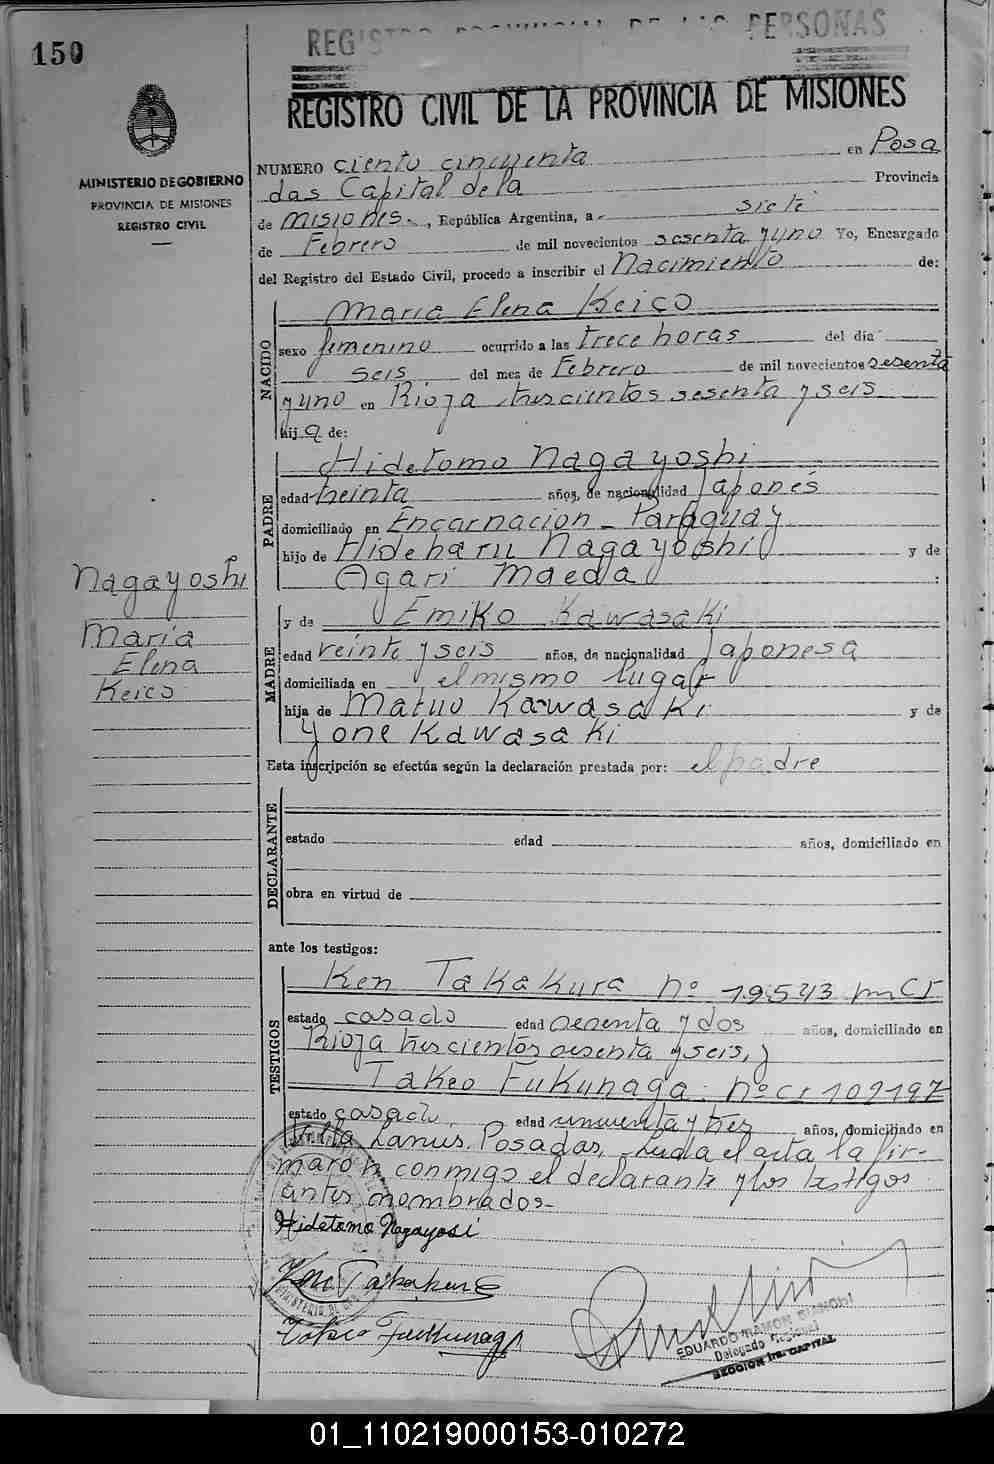 150
REGISTRO PROVINCIAL DE LAS PERSONAS
REGISTRO CIVIL DE LA PROVINCIA DE MISIONES
MINISTERIO DE GOBIERNO
PROVINCIA DE MISIONES
REGISTRO CIVIL
NUMERO ciento cincuenta en Posa
das Capital de la Provincia
de Misiones., República Argentina, a siete
de Febrero de mil novecientos sesenta y uno Yo, Encargado
del Registro del Estado Civil, procedo a inscribir el Nacimiento de:
NACIDO
Maria Elena Keico
sexo femenino ocurrido a las trece horas del día
seis del mes de Febrero de mil novecientos sesenta
y uno en Rioja trescientos sesenta y seis
hija de:
PADRE
Hidetomo Nagayoshi
edad treinta años, de nacionalidad Japonés
domiciliado en Encarnacion - Paraguay
hijo de Hideharu Nagayoshi y de
Agari Maeda :
Nagayoshi
Maria
Elena
Keico
MADRE
y de Emiko Kawasaki
edad veinte y seis años, de nacionalidad Japonesa
domiciliada en el mismo lugar
hija de Matuo Kawasaki y de
Yone Kawasaki
Esta inscripción se efectúa según la declaración prestada por: el padre
DECLARANTE
estado edad años, domiciliado en
obra en virtud de
ante los testigos:
TESTIGOS
Ken Takakura nº 19.543 m CI
estado casado edad sesenta y dos años, domiciliado en
Rioja trescientos sesenta y seis, y
Takeo Fukunaga. nº CI 102197
estado casado, edad cincuenta y tres años, domiciliado en
Villa Lanus. Posadas, Leida el acta la fir-
maron conmigo el declarante y los testigos
antes nombrados-
Hidetomo Nagayosi
Ken Takakura
Takeo Fukunaga
EDUARDO RAMON BIANCHI
Delegado Regional
SECCION 1ra. CAPITAL
01_110219000153-010272